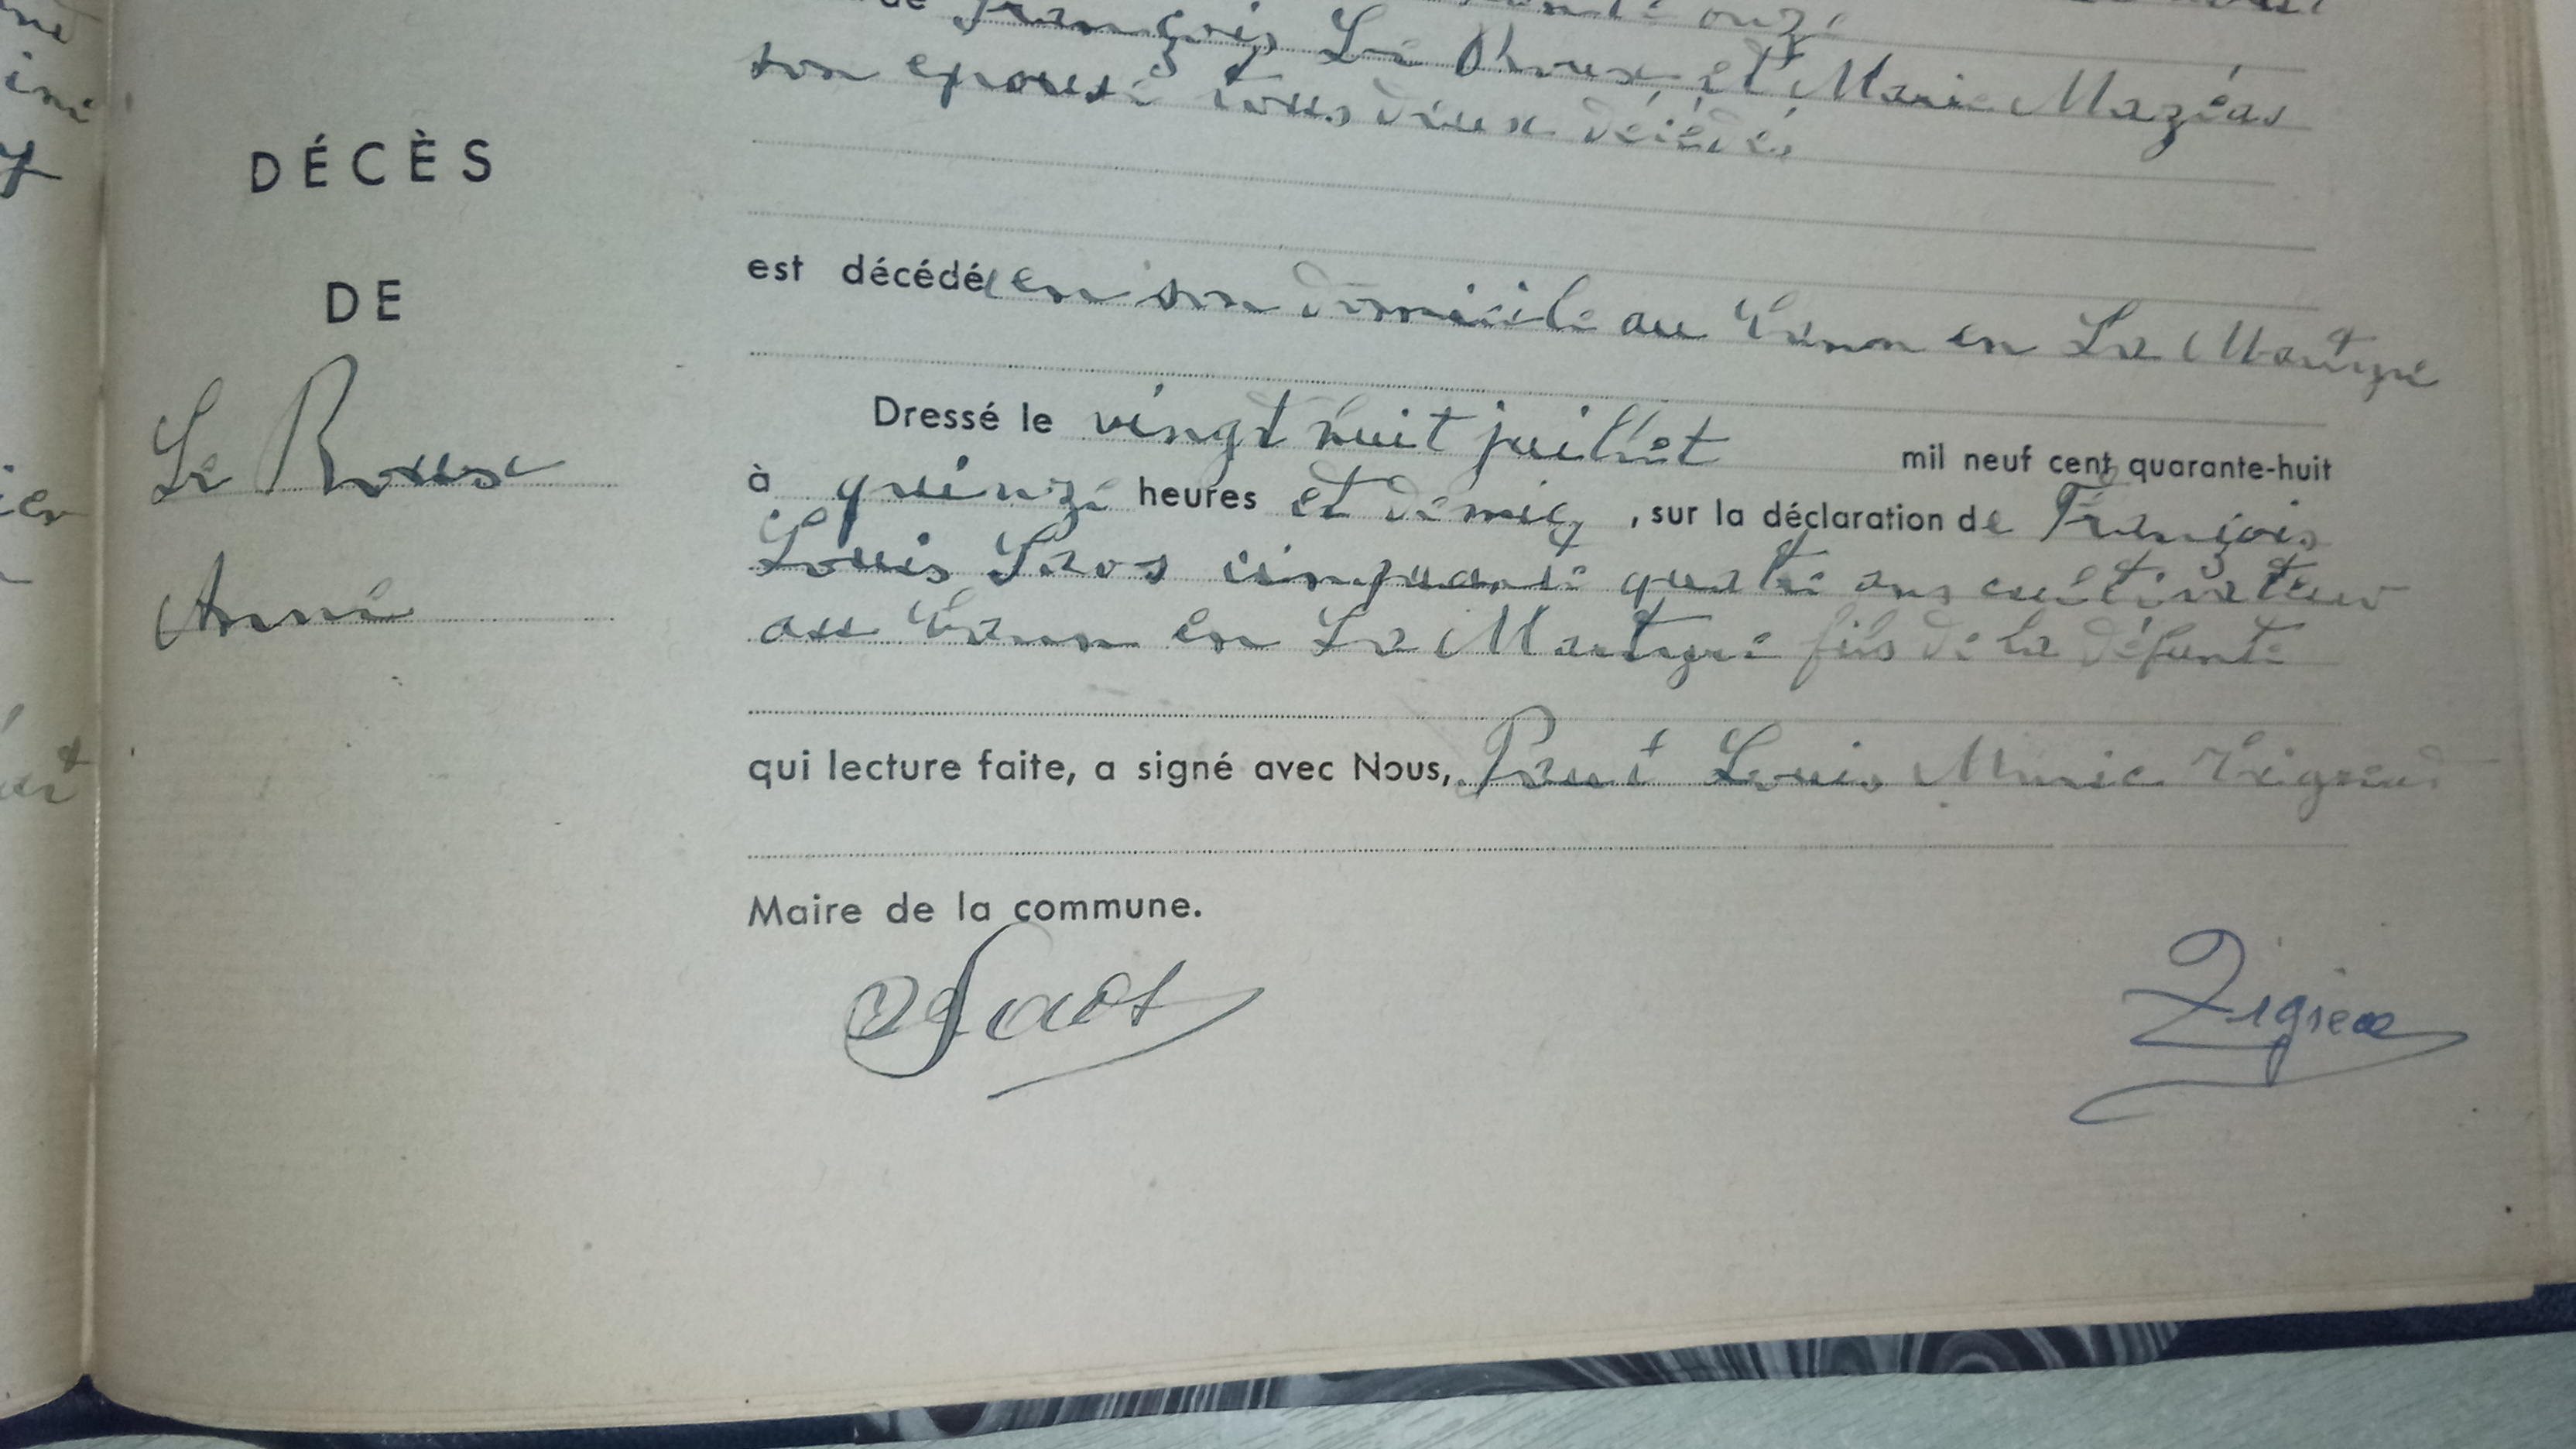 de François Le Roux, et Marie Mazéas
son epouse tous deux décédés
DÉCÈS
DE
Le Roux
Anne
est décédée en son domicile au en La Martyre
Dressé le vingt huit juillet mil neuf cent quarante-huit
à quinze heures et demie, sur la déclaration de François
Louis Saos cinquante quatre ans cultivateur
au en La Martyre fils de la défunte
qui lecture faite, a signé avec Nous, Louis Marie
Maire de la commune.
Saos